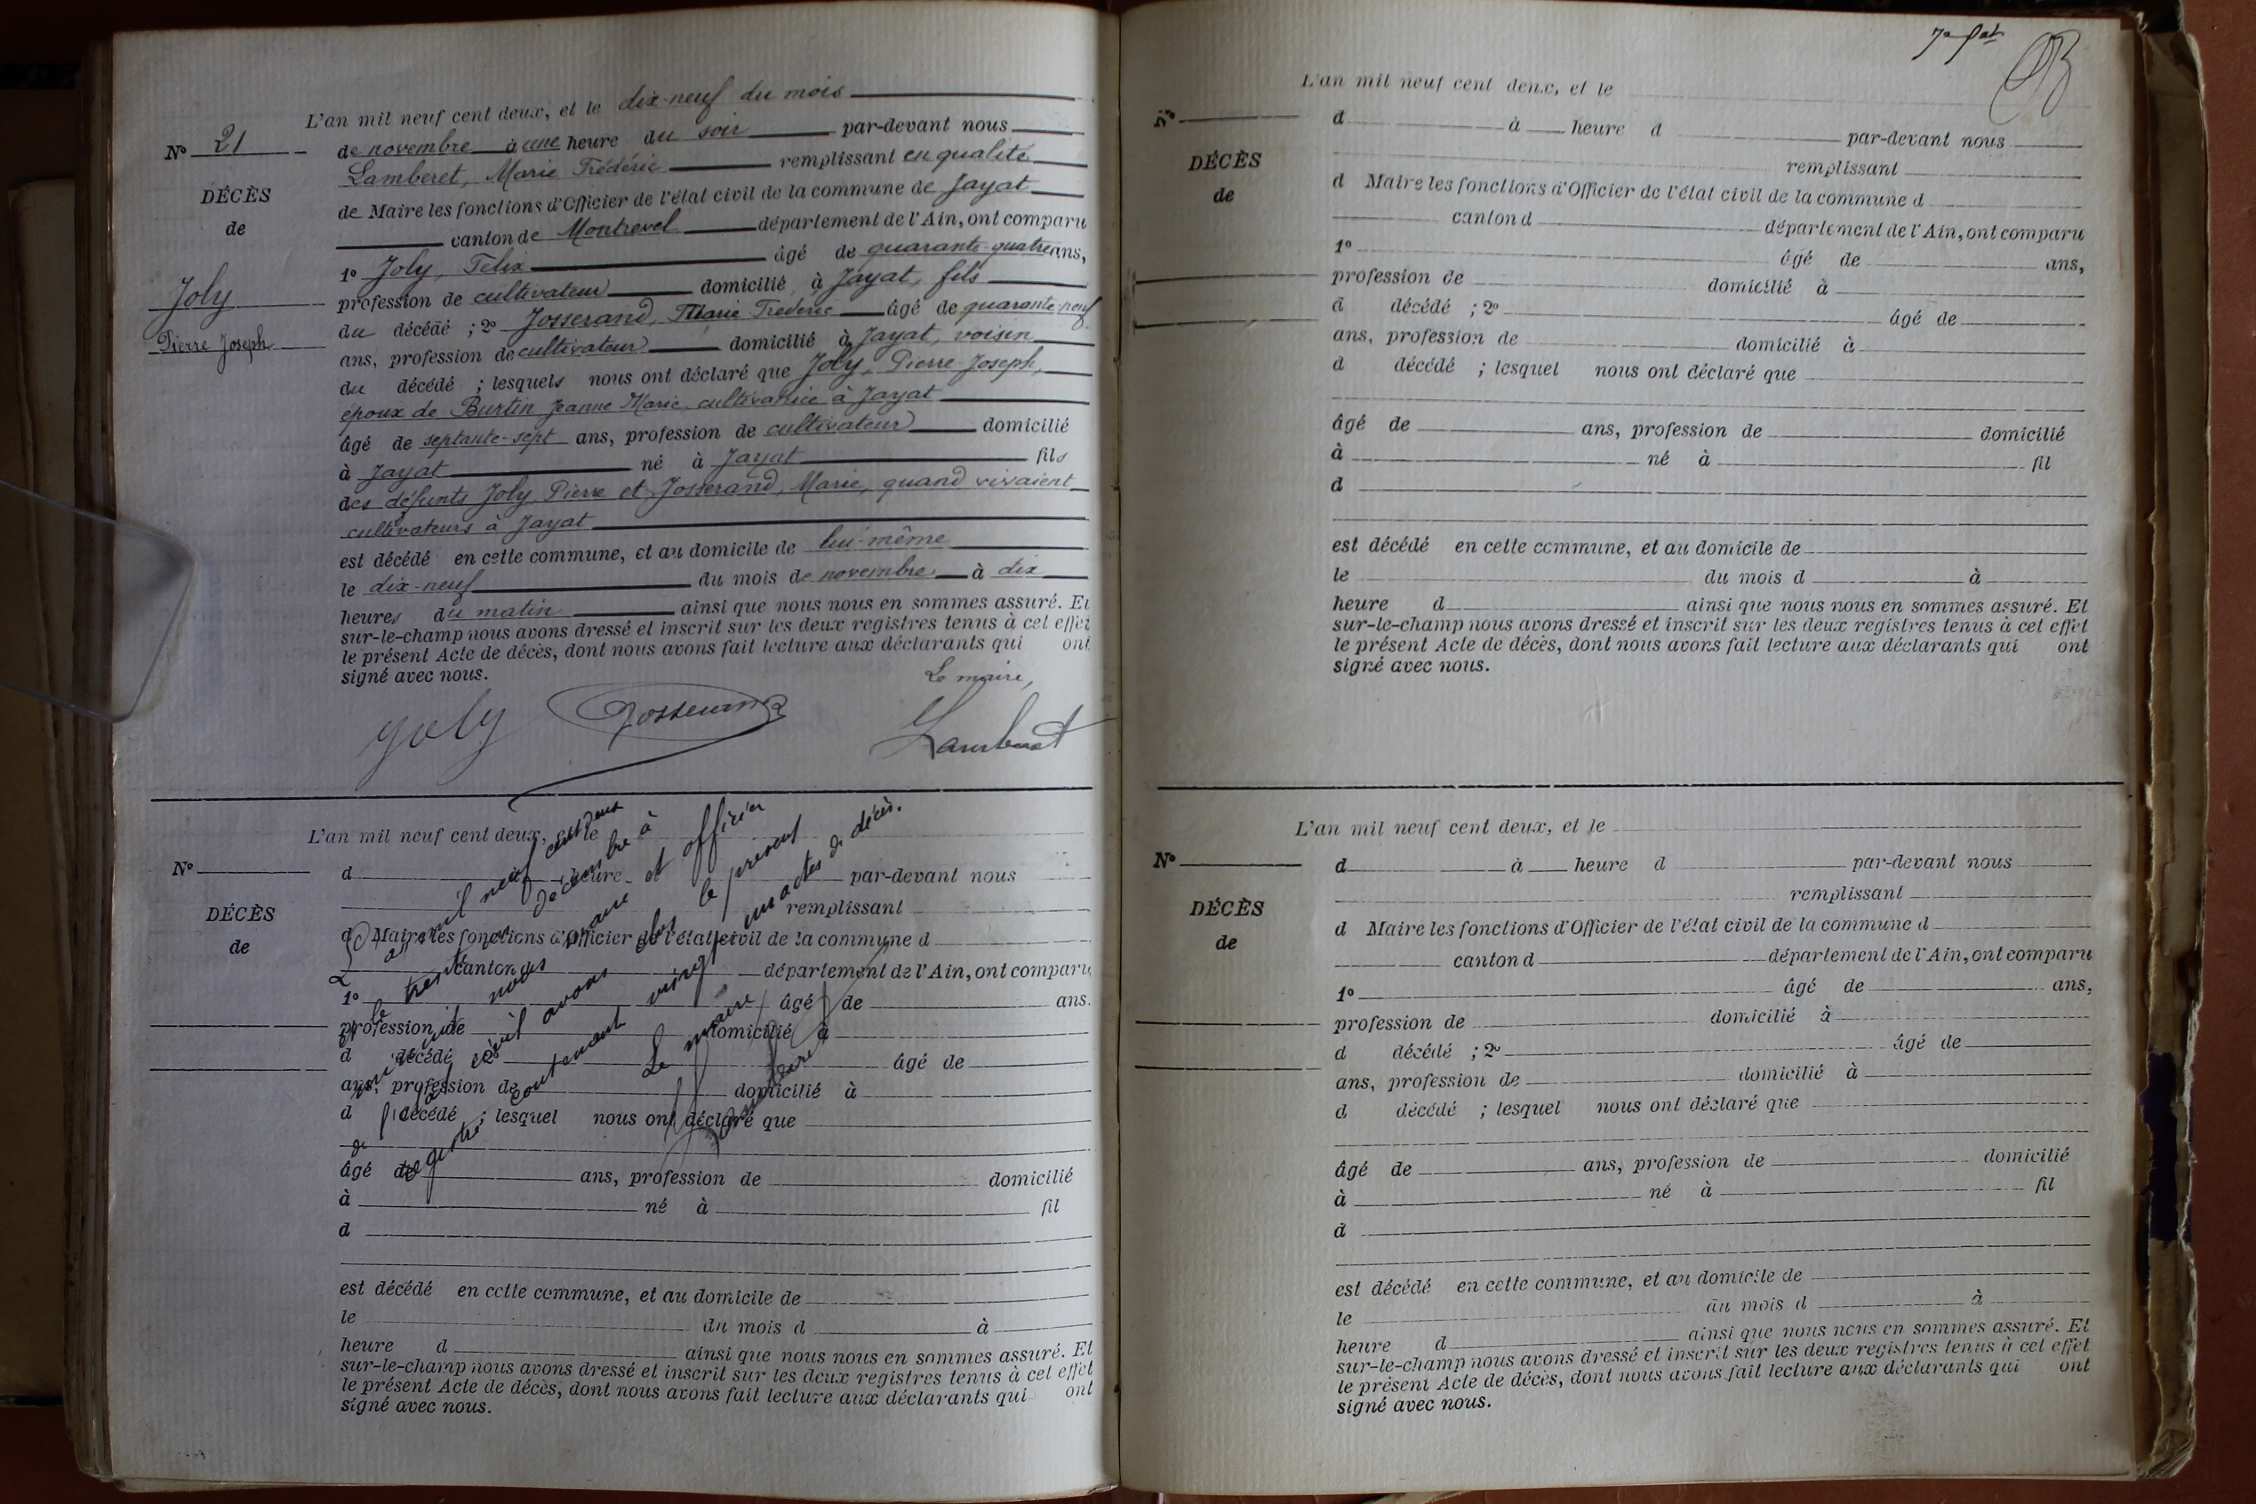 L'an mil neuf cent deux, et le dix-neuf du mois
N° 21
de novembre à une heure du soir par-devant nous
Lamberet, Marie Frédéric remplissant en qualité
DÉCÈS
de Maire les fonctions d'Officier de l'état civil de la commune de Jayat
de
canton de Montrevel département de l'Ain, ont comparu
1° Joly, Félix âgé de quarante-quatre ans,
Joly
profession de cultivateur domicilié à Jayat, fils
du décédé ; 2° Josserand, Marie Frédéric âgé de quarante-neuf
Pierre Joseph
ans, profession de cultivateur domicilié à Jayat, voisin
du décédé ; lesquels nous ont déclaré que Joly, Pierre-Joseph,
époux de Burtin Jeanne Marie, cultivatrice à Jayat
âgé de septante-sept ans, profession de cultivateur domicilié
à Jayat né à Jayat fils
des défunts Joly, Pierre et Josserand, Marie, quand vivaient
cultivateurs à Jayat
est décédé en cette commune, et au domicile de lui-même
le dix-neuf du mois de novembre à dix
heures du matin ainsi que nous nous en sommes assuré. Et
sur-le-champ nous avons dressé et inscrit sur les deux registres tenus à cet effet
le présent Acte de décès, dont nous avons fait lecture aux déclarants qui ont
signé avec nous.
Le maire,
Joly Josserand Lamberet
L'an mil neuf cent deux, et le
N°
d heure par-devant nous
remplissant
DÉCÈS
d Maire les fonctions d'Officier de l'état civil de la commune d
de
canton d département de l'Ain, ont comparu
1° âgé de ans,
profession de domicilié à
d décédé 2° âgé de
ans, profession de domicilié à
d décédé ; lesquel nous ont déclaré que
âgé de ans, profession de domicilié
à né à fil
d
est décédé en cette commune, et au domicile de
le du mois d à
heure d ainsi que nous nous en sommes assuré. Et
sur-le-champ nous avons dressé et inscrit sur les deux registres tenus à cet effet
le présent Acte de décès, dont nous avons fait lecture aux déclarants qui ont
signé avec nous.
mil neuf cent deux
le trente décembre à
nous maire et officier
civil avons clos le présent
registre contenant vingt un actes de décès.
Le maire
Lamberet
L'an mil neuf cent deux, et le
N°
d à heure d par-devant nous
remplissant
DÉCÈS
d Maire les fonctions d'Officier de l'état civil de la commune d
de
canton d département de l'Ain, ont comparu
1° âgé de ans,
profession de domicilié à
d décédé ; 2° âgé de
ans, profession de domicilié à
d décédé ; lesquel nous ont déclaré que
âgé de ans, profession de domicilié
à né à fil
d
est décédé en cette commune, et au domicile de
le du mois d à
heure d ainsi que nous nous en sommes assuré. Et
sur-le-champ nous avons dressé et inscrit sur les deux registres tenus à cet effet
le présent Acte de décès, dont nous avons fait lecture aux déclarants qui ont
signé avec nous.
L'an mil neuf cent deux, et le
N°
d à heure d par-devant nous
remplissant
DÉCÈS
d Maire les fonctions d'Officier de l'état civil de la commune d
de
canton d département de l'Ain, ont comparu
1° âgé de ans,
profession de domicilié à
d décédé ; 2° âgé de
ans, profession de domicilié à
d décédé ; lesquel nous ont déclaré que
âgé de ans, profession de domicilié
à né à fil
d
est décédé en cette commune, et au domicile de
le du mois d à
heure d ainsi que nous nous en sommes assuré. Et
sur-le-champ nous avons dressé et inscrit sur les deux registres tenus à cet effet
le présent Acte de décès, dont nous avons fait lecture aux déclarants qui ont
signé avec nous.